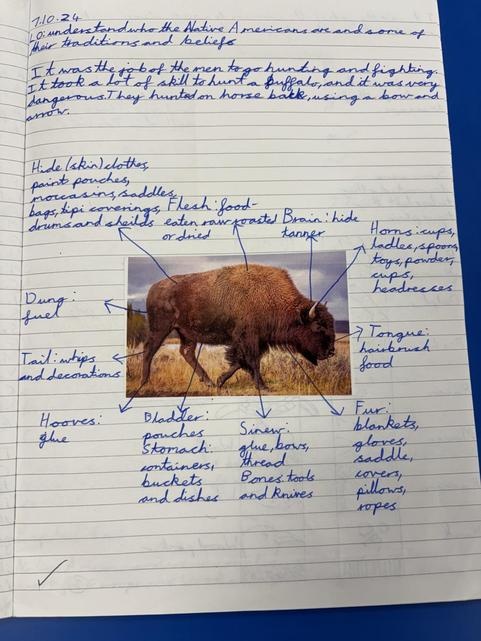 7.10.24
LO: understand who the Native Americans are and some of
their traditions and beliefs
It was the job of the men to go hunting and fighting.
It took a lot of skill to hunt a buffalo, and it was very
dangerous. They hunted on horse back, using a bow and
arrow.
Hide (skin) clothes,
paint pouches,
moccasins, saddles,
bags, tipi coverings,
drums and sheilds
Flesh: food-
eaten raw roasted
or dried
Brain: hide
tanner
Horns: cups,
ladles, spoons,
toys, powder,
cups,
headresses
Dung:
fuel
Tongue:
hairbrush
food
Tail: whips
and decorations
Hooves:
glue
Bladder:
pouches
Stomach:
containers,
buckets
and dishes
Sinew:
glue, bows,
thread
Bones: tools
and knives
Fur:
blankets,
gloves,
saddle,
covers,
pillows,
ropes